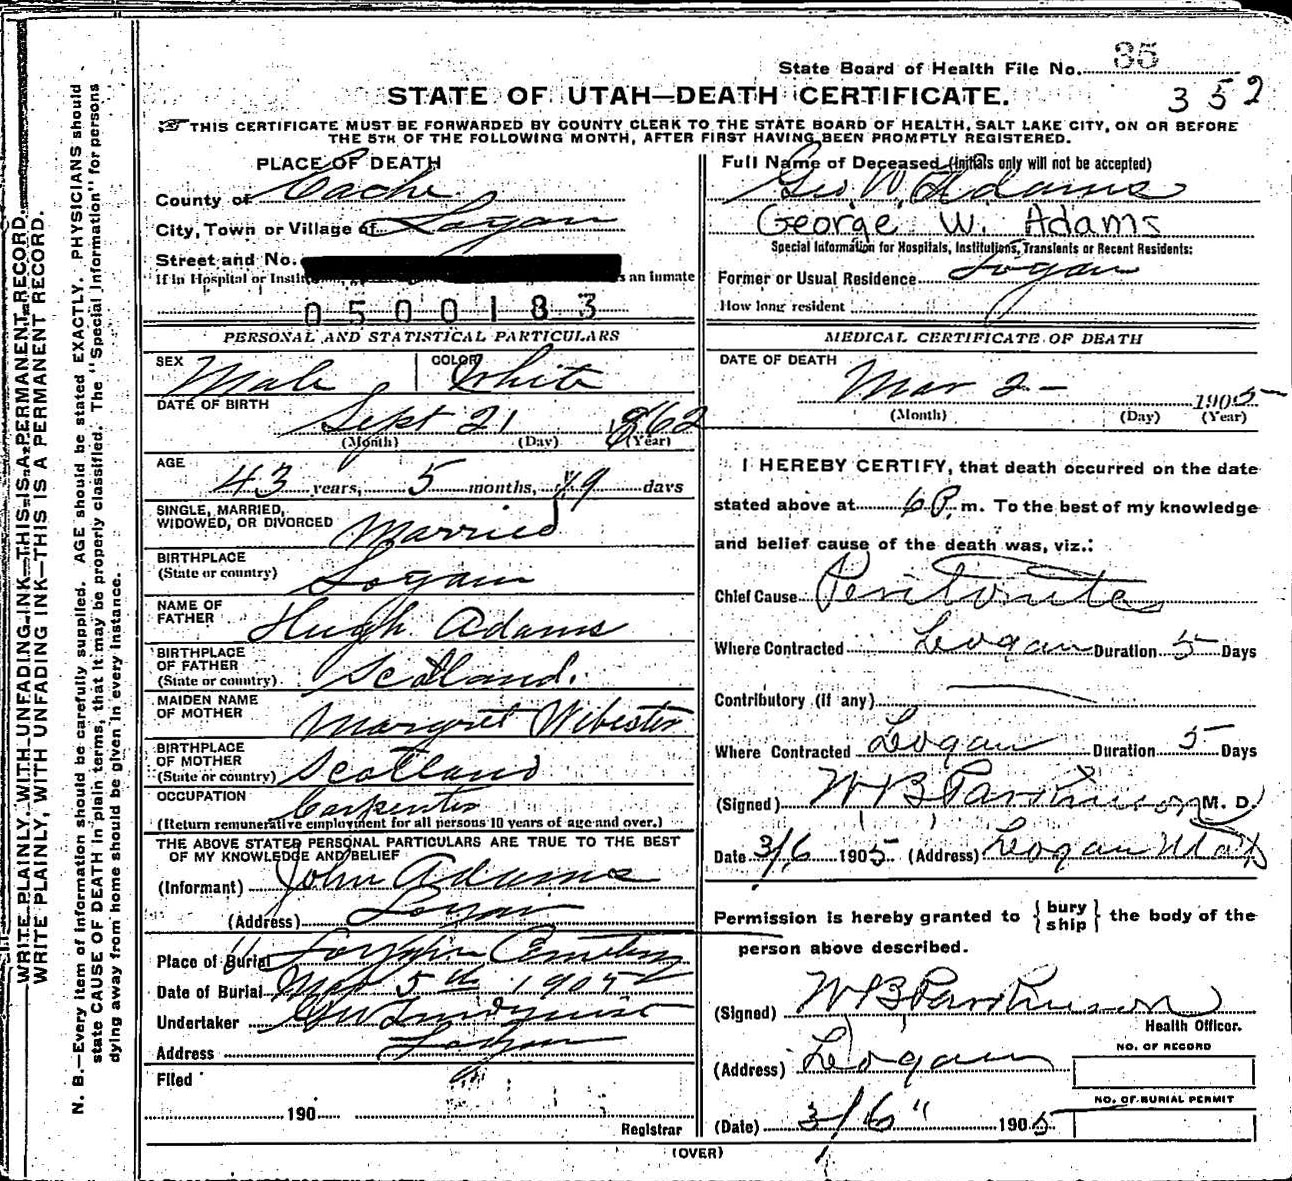 State Board of Health File No. 35
352
STATE OF UTAH—DEATH CERTIFICATE.
THIS CERTIFICATE MUST BE FORWARDED BY COUNTY CLERK TO THE STATE BOARD OF HEALTH, SALT LAKE CITY, ON OR BEFORE
THE 5TH OF THE FOLLOWING MONTH, AFTER FIRST HAVING BEEN PROMPTLY REGISTERED.
WRITE PLAINLY, WITH UNFADING INK—THIS IS A PERMANENT RECORD.
WRITE PLAINLY, WITH UNFADING INK—THIS IS A PERMANENT RECORD.
N. B.—Every item of information should be carefully supplied. AGE should be stated EXACTLY. PHYSICIANS should
state CAUSE OF DEATH in plain terms, that it may be properly classified. The "Special Information" for persons
dying away from home should be given in every instance.
PLACE OF DEATH
County of Cache
City, Town or Village of Logan
Street and No.
If in Hospital or Instit s an inmate
0500183
PERSONAL AND STATISTICAL PARTICULARS
SEX Male COLOR White
DATE OF BIRTH
Sept 21 1862
(Month) (Day) (Year)
AGE
43 years, 5 months, 19 days
SINGLE, MARRIED,
WIDOWED, OR DIVORCED Married
BIRTHPLACE
(State or country) Logan
NAME OF
FATHER Hugh Adams
BIRTHPLACE
OF FATHER
(State or country) Scotland.
MAIDEN NAME
OF MOTHER Margret Webester
BIRTHPLACE
OF MOTHER
(State or country) Scotland
OCCUPATION Carpenter
(Return remunerative employment for all persons 10 years of age and over.)
THE ABOVE STATED PERSONAL PARTICULARS ARE TRUE TO THE BEST
OF MY KNOWLEDGE AND BELIEF
(Informant) John Adams
(Address) Logan
Place of Burial Logan Cemetery
Date of Burial Mar 5th 1905
Undertaker
Address Logan
Filed
190
Registrar
Full Name of Deceased (Initials only will not be accepted)
Geo. W. Adams
George W. Adams
Special Information for Hospitals, Institutions, Transients or Recent Residents:
Former or Usual Residence Logan
How long resident
MEDICAL CERTIFICATE OF DEATH
DATE OF DEATH
Mar 2 - 1905
(Month) (Day) (Year)
I HEREBY CERTIFY, that death occurred on the date
stated above at 6 P. m. To the best of my knowledge
and belief cause of the death was, viz.:
Chief Cause Peritonites
Where Contracted Logan Duration 5 Days
Contributory (if any)
Where Contracted Logan Duration 5 Days
(Signed) W B Parkinson M. D.
Date 3/6 1905 (Address) Logan Utah
Permission is hereby granted to { bury ship } the body of the
person above described.
(Signed) W B Parkinson
Health Officer.
(Address) Logan
NO. OF RECORD
NO. OF BURIAL PERMIT
(Date) 3/6 " 1905
(OVER)